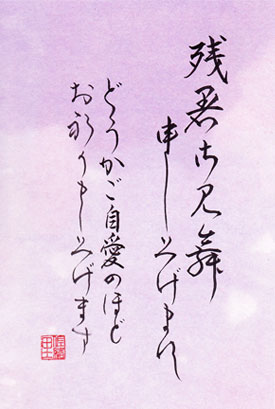 残暑お見舞
申し上げます
どうかご自愛のほど
お祈り申し上げます